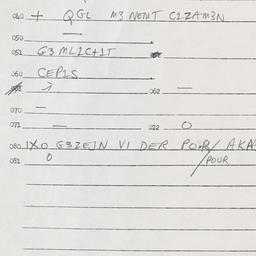 040 + QGL M3 NEMT C1ZAM3N
050 —
051 G3 ML2C+1T
060 CEP1S
062 —
070 —
071 — 072 0
080 1X0 G3ZEJN VI DER POUR/ AKA
081 0 /POUR